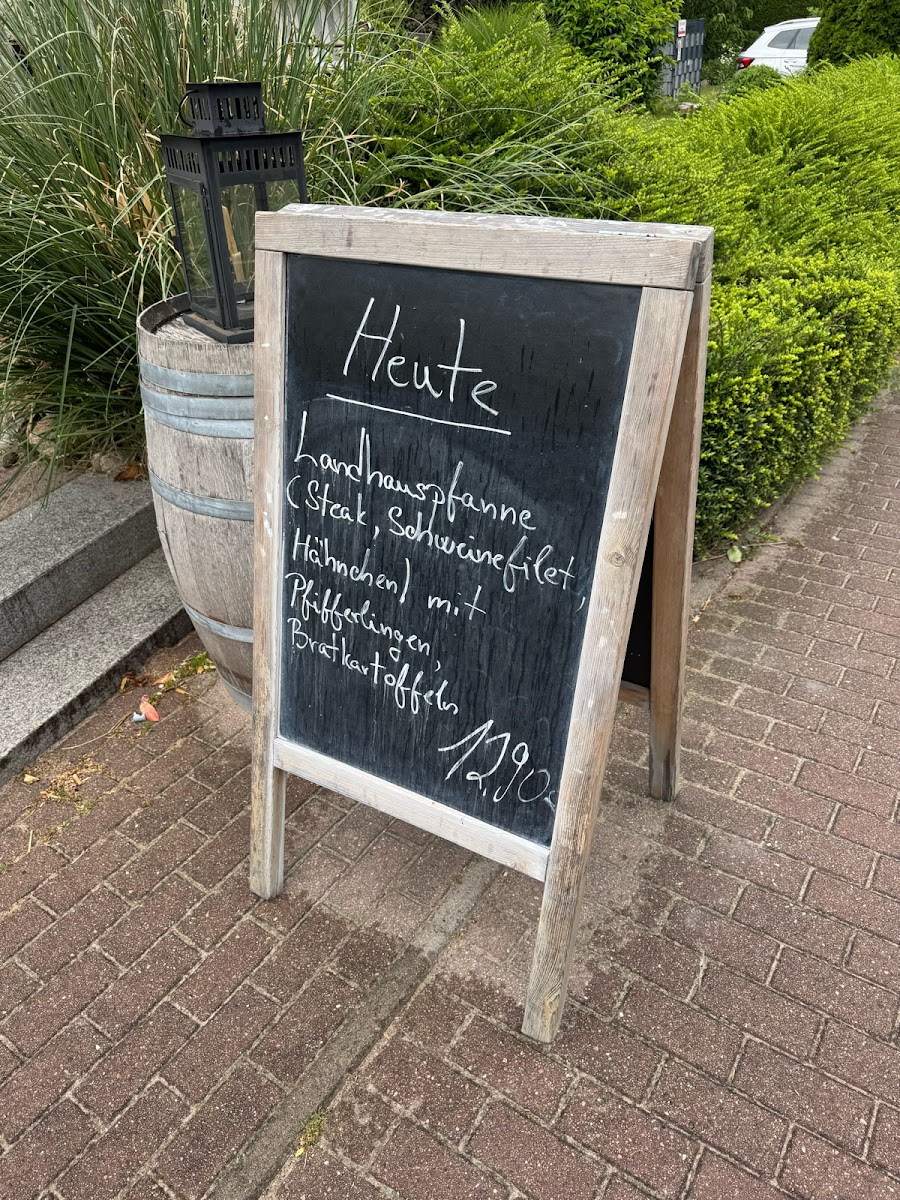 Heute
Landhauspfanne
(Steak, Schweinefilet,
Hähnchen) mit
Pfifferlingen,
Bratkartoffeln
12,90€